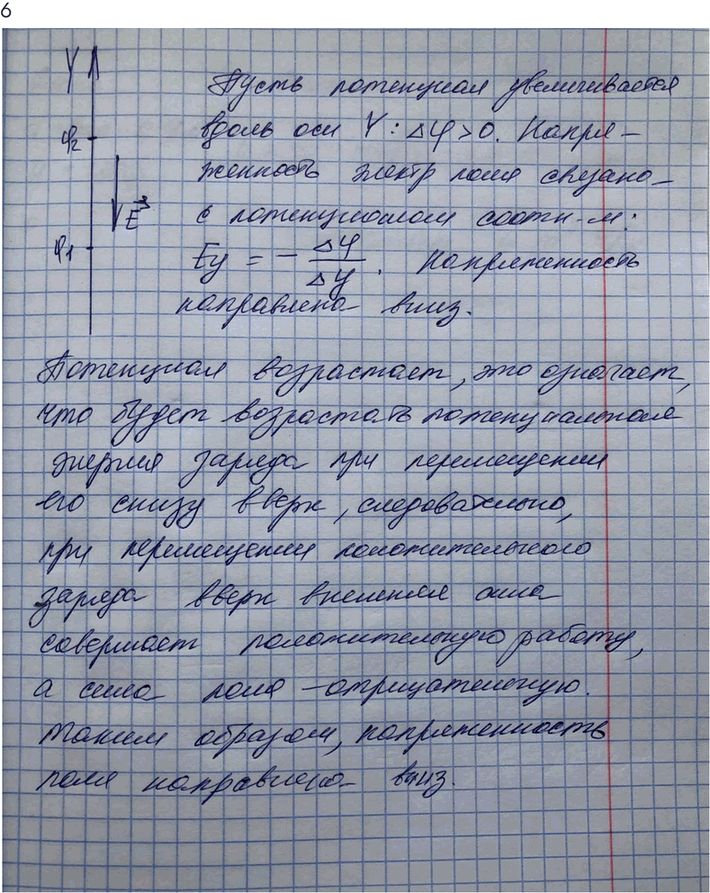 6
Y
φ2
E
φ1
Пусть потенциал увеличивается
вдоль оси Y: Δφ>0. Напря-
женность электр поля связана
с потенциалом соотн-м:
Ey = - Δφ/Δy. Напряженность
направлена вниз.
Потенциал возрастает, это означает,
что будет возрастать потенциальная
энергия заряда при перемещении
его снизу вверх, следовательно,
при перемещении положительного
заряда вверх внешняя сила
совершает положительную работу,
а сила поля - отрицательную.
Таким образом, напряженность
поля направлена вниз.